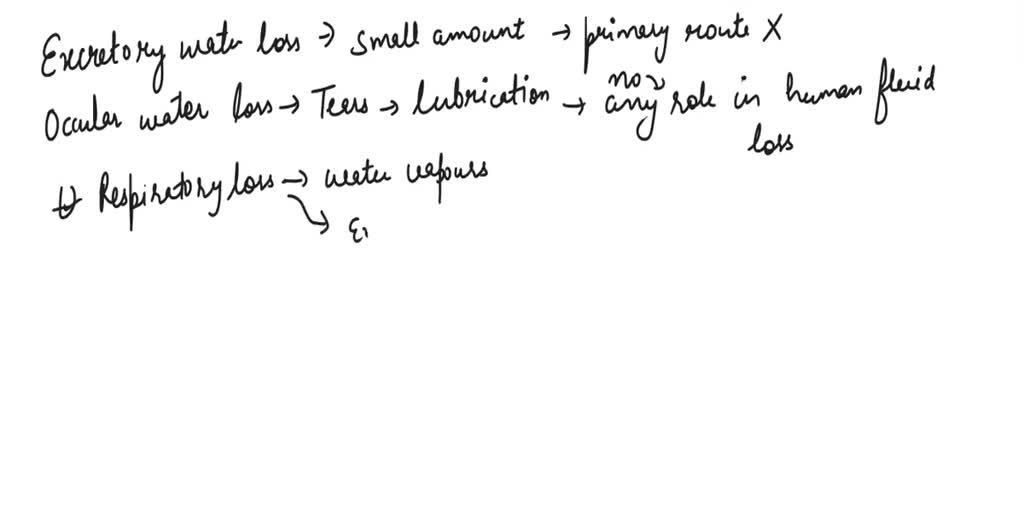 Excretory water loss → small amount → primary route X
Occular water loss → Tears → lubrication → no any role in human fluid loss
Respiratory loss → water vapours
→ E